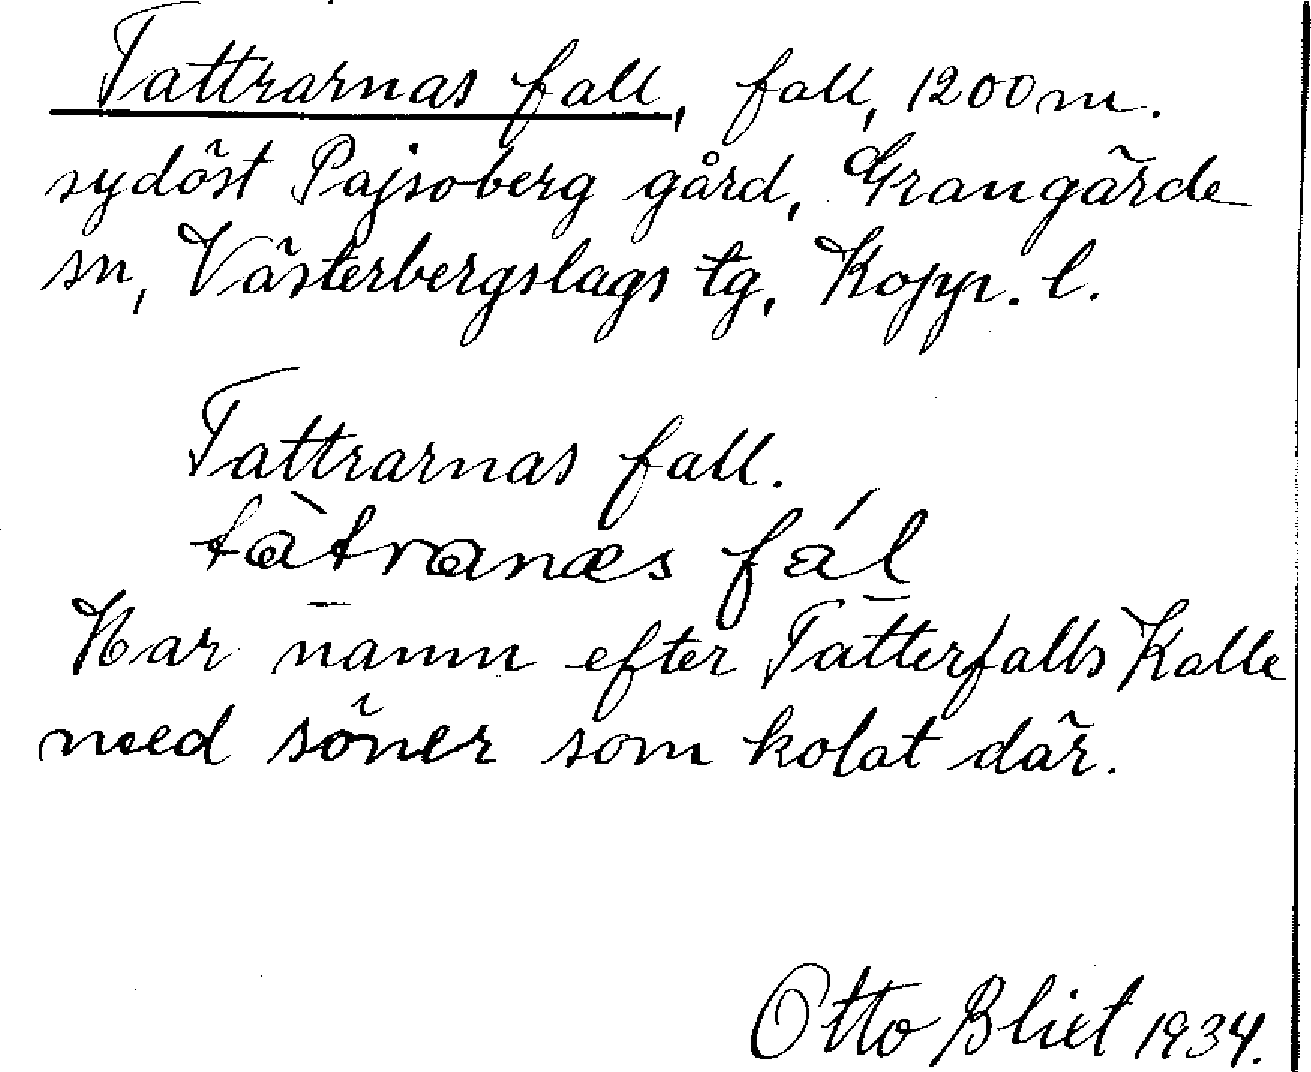 Tattrarnas fall, fall, 1200 m.
sydöst Pajsoberg gård, Grangärde
sn, Västerbergslags tg, Kopp. l.
Tattrarnas fall.
tàtranæs fál
Har namn efter Tatterfalls Kalle
med söner som kolat där.
Otto Bliet 1934.